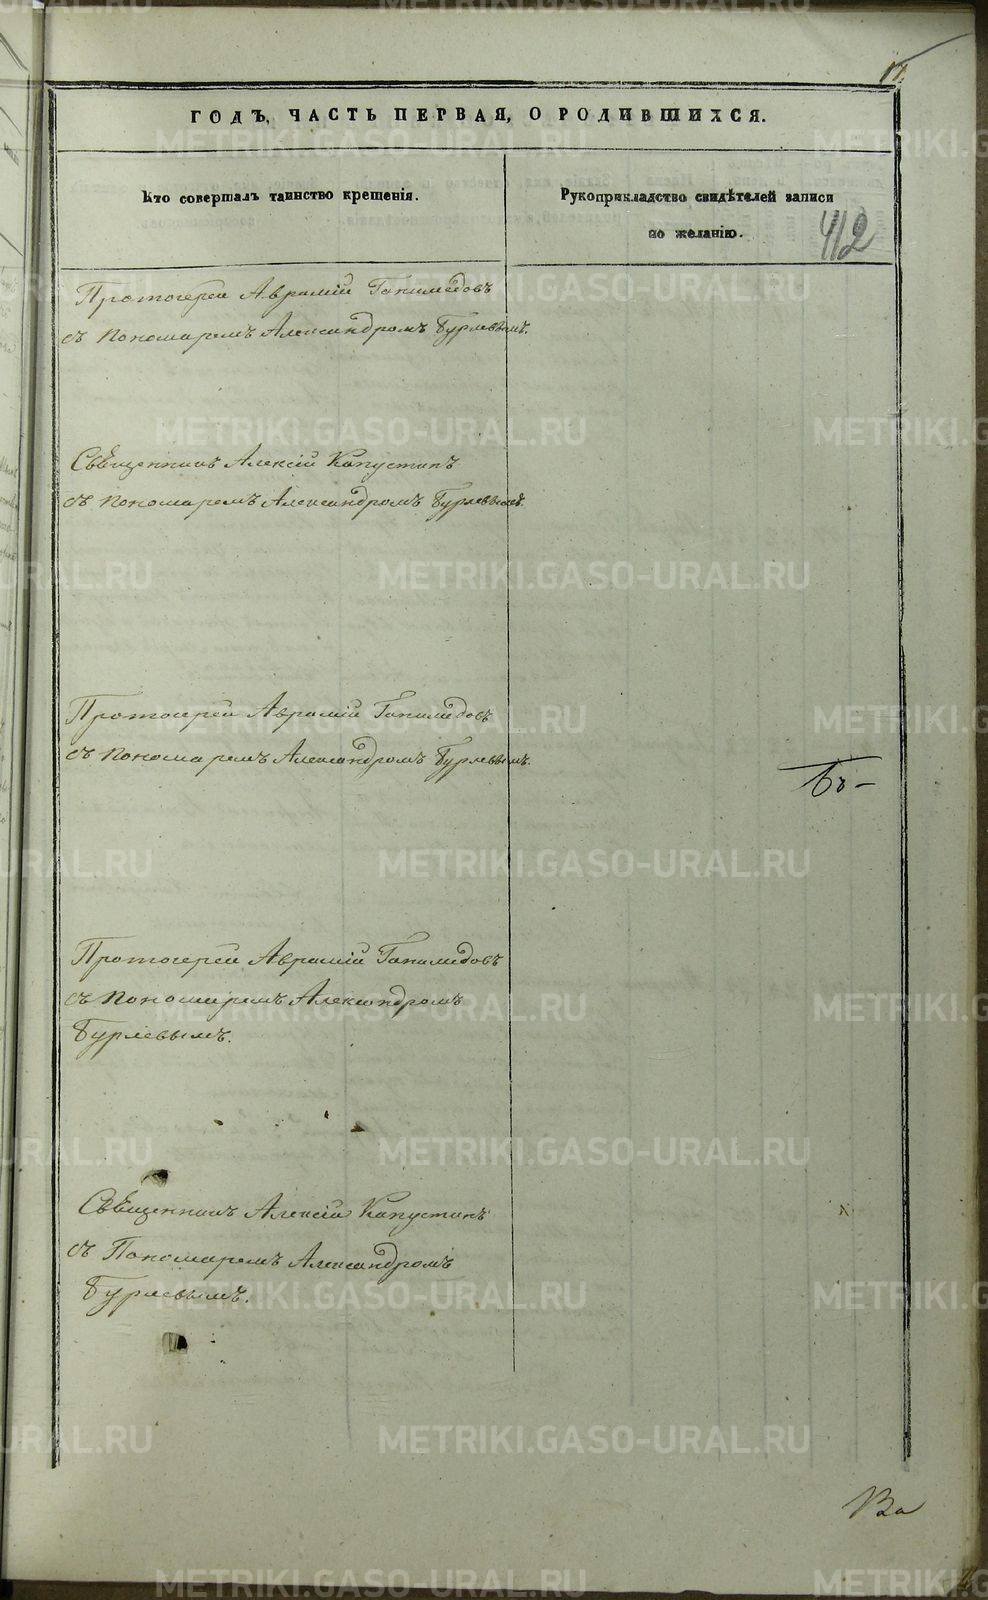 17.
ГОДЪ, ЧАСТЬ ПЕРВАЯ, О РОДИВШИХСЯ.
Кто совершалъ таинство крещенія.
Рукоприкладство свидѣтелей записи
по желанію.
412
Протоіерей Аврамій
съ Пономаремъ Александромъ Бурлевымъ.
Священникъ Алексій Капустинъ
съ Пономаремъ Александромъ Бурлевымъ.
Протоіерей Аврамій
съ Пономаремъ Александромъ Бурлевымъ.
Протоіерей Аврамій
съ Пономаремъ Александромъ
Бурлевымъ.
Священникъ Алексій Капустинъ
съ Пономаремъ Александромъ
Бурлевымъ.
METRIKI.GASO-URAL.RU